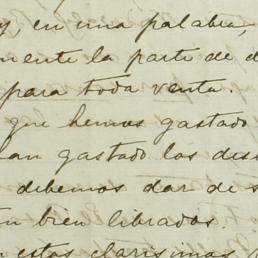 y, en una palabra,
mente la parte de d
para toda venta.
que hemos gastado
han gastado los des
debemos dar de s
bien librados.
estas clarisimas